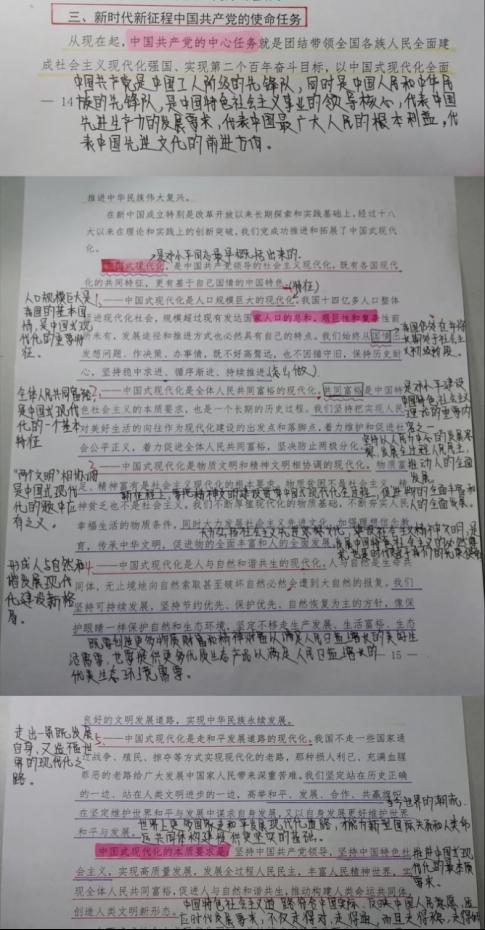 三、新时代新征程中国共产党的使命任务
从现在起，中国共产党的中心任务就是团结带领全国各族人民全面建
成社会主义现代化强国、实现第二个百年奋斗目标，以中国式现代化全面
中国共产党是中国工人阶级的先锋队，同时是中国人民和中华民
— 14
族的先锋队，是中国特色社会主义事业的领导核心，代表中国
先进生产力的发展要求，代表中国最广大人民的根本利益，代
表中国先进文化的前进方向。
推进中华民族伟大复兴。
在新中国成立特别是改革开放以来长期探索和实践基础上，经过十八
大以来在理论和实践上的创新突破，我们党成功推进和拓展了中国式现代
化。
是邓小平同志最早概括出来的
中国式现代化，是中国共产党领导的社会主义现代化，既有各国现代
化的共同特征，更有基于自己国情的中国特色。
(特征)
人口规模巨大是
我国的基本国
情，是中国式现
代化的重要特
征。
——中国式现代化是人口规模巨大的现代化。我国十四亿多人口整体
迈进现代化社会，规模超过现有发达国家人口的总和，艰巨性和复杂性前
所未有，发展途径和推进方式也必然具有自己的特点。我们始终从国情出
发想问题、作决策、办事情，既不好高骛远，也不因循守旧，保持历史耐
心，坚持稳中求进、循序渐进、持续推进。
(怎么做)
全体人民共同富裕
是中国式现代
化的一个基本
特征
——中国式现代化是全体人民共同富裕的现代化。共同富裕是中国特
色社会主义的本质要求，也是一个长期的历史过程。我们坚持把实现人民
对美好生活的向往作为现代化建设的出发点和落脚点，着力维护和促进社
会公平正义，着力促进全体人民共同富裕，坚决防止两极分化。
"两个文明"相协调
是中国式现代
化的题中应
有之义。
——中国式现代化是物质文明和精神文明相协调的现代化。物质富
足、精神富有是社会主义现代化的根本要求。物质贫困不是社会主义，精
神贫乏也不是社会主义。我们不断厚植现代化的物质基础，不断夯实人民
幸福生活的物质条件，同时大力发展社会主义先进文化，加强理想信念教
育，传承中华文明，促进物的全面丰富和人的全面发展。
形成人与自然和
谐发展现代
化建设新格
局。
——中国式现代化是人与自然和谐共生的现代化。人与自然是生命共
同体，无止境地向自然索取甚至破坏自然必然会遭到大自然的报复。我们
坚持可持续发展，坚持节约优先、保护优先、自然恢复为主的方针，像保
护眼睛一样保护自然和生态环境，坚定不移走生产发展、生活富裕、生态
既要创造更多物质财富和精神财富以满足人民日益增长的美好生
活需要，也要提供更多优质生态产品以满足人民日益增长的
— 15 —
优美生态环境需要。
良好的文明发展道路，实现中华民族永续发展。
走出一条既发展
自身，又造福世
界的现代化之
路。
——中国式现代化是走和平发展道路的现代化。我国不走一些国家通
过战争、殖民、掠夺等方式实现现代化的老路，那种损人利己、充满血腥
罪恶的老路给广大发展中国家人民带来深重苦难。我们坚定站在历史正确
的一边、站在人类文明进步的一边，高举和平、发展、合作、共赢旗帜，
在坚定维护世界和平与发展中谋求自身发展，又以自身发展更好维护世界
和平与发展。
中国式现代化的本质要求是：坚持中国共产党领导，坚持中国特色社
会主义，实现高质量发展，发展全过程人民民主，丰富人民精神世界，实
现全体人民共同富裕，促进人与自然和谐共生，推动构建人类命运共同体，
创造人类文明新形态。